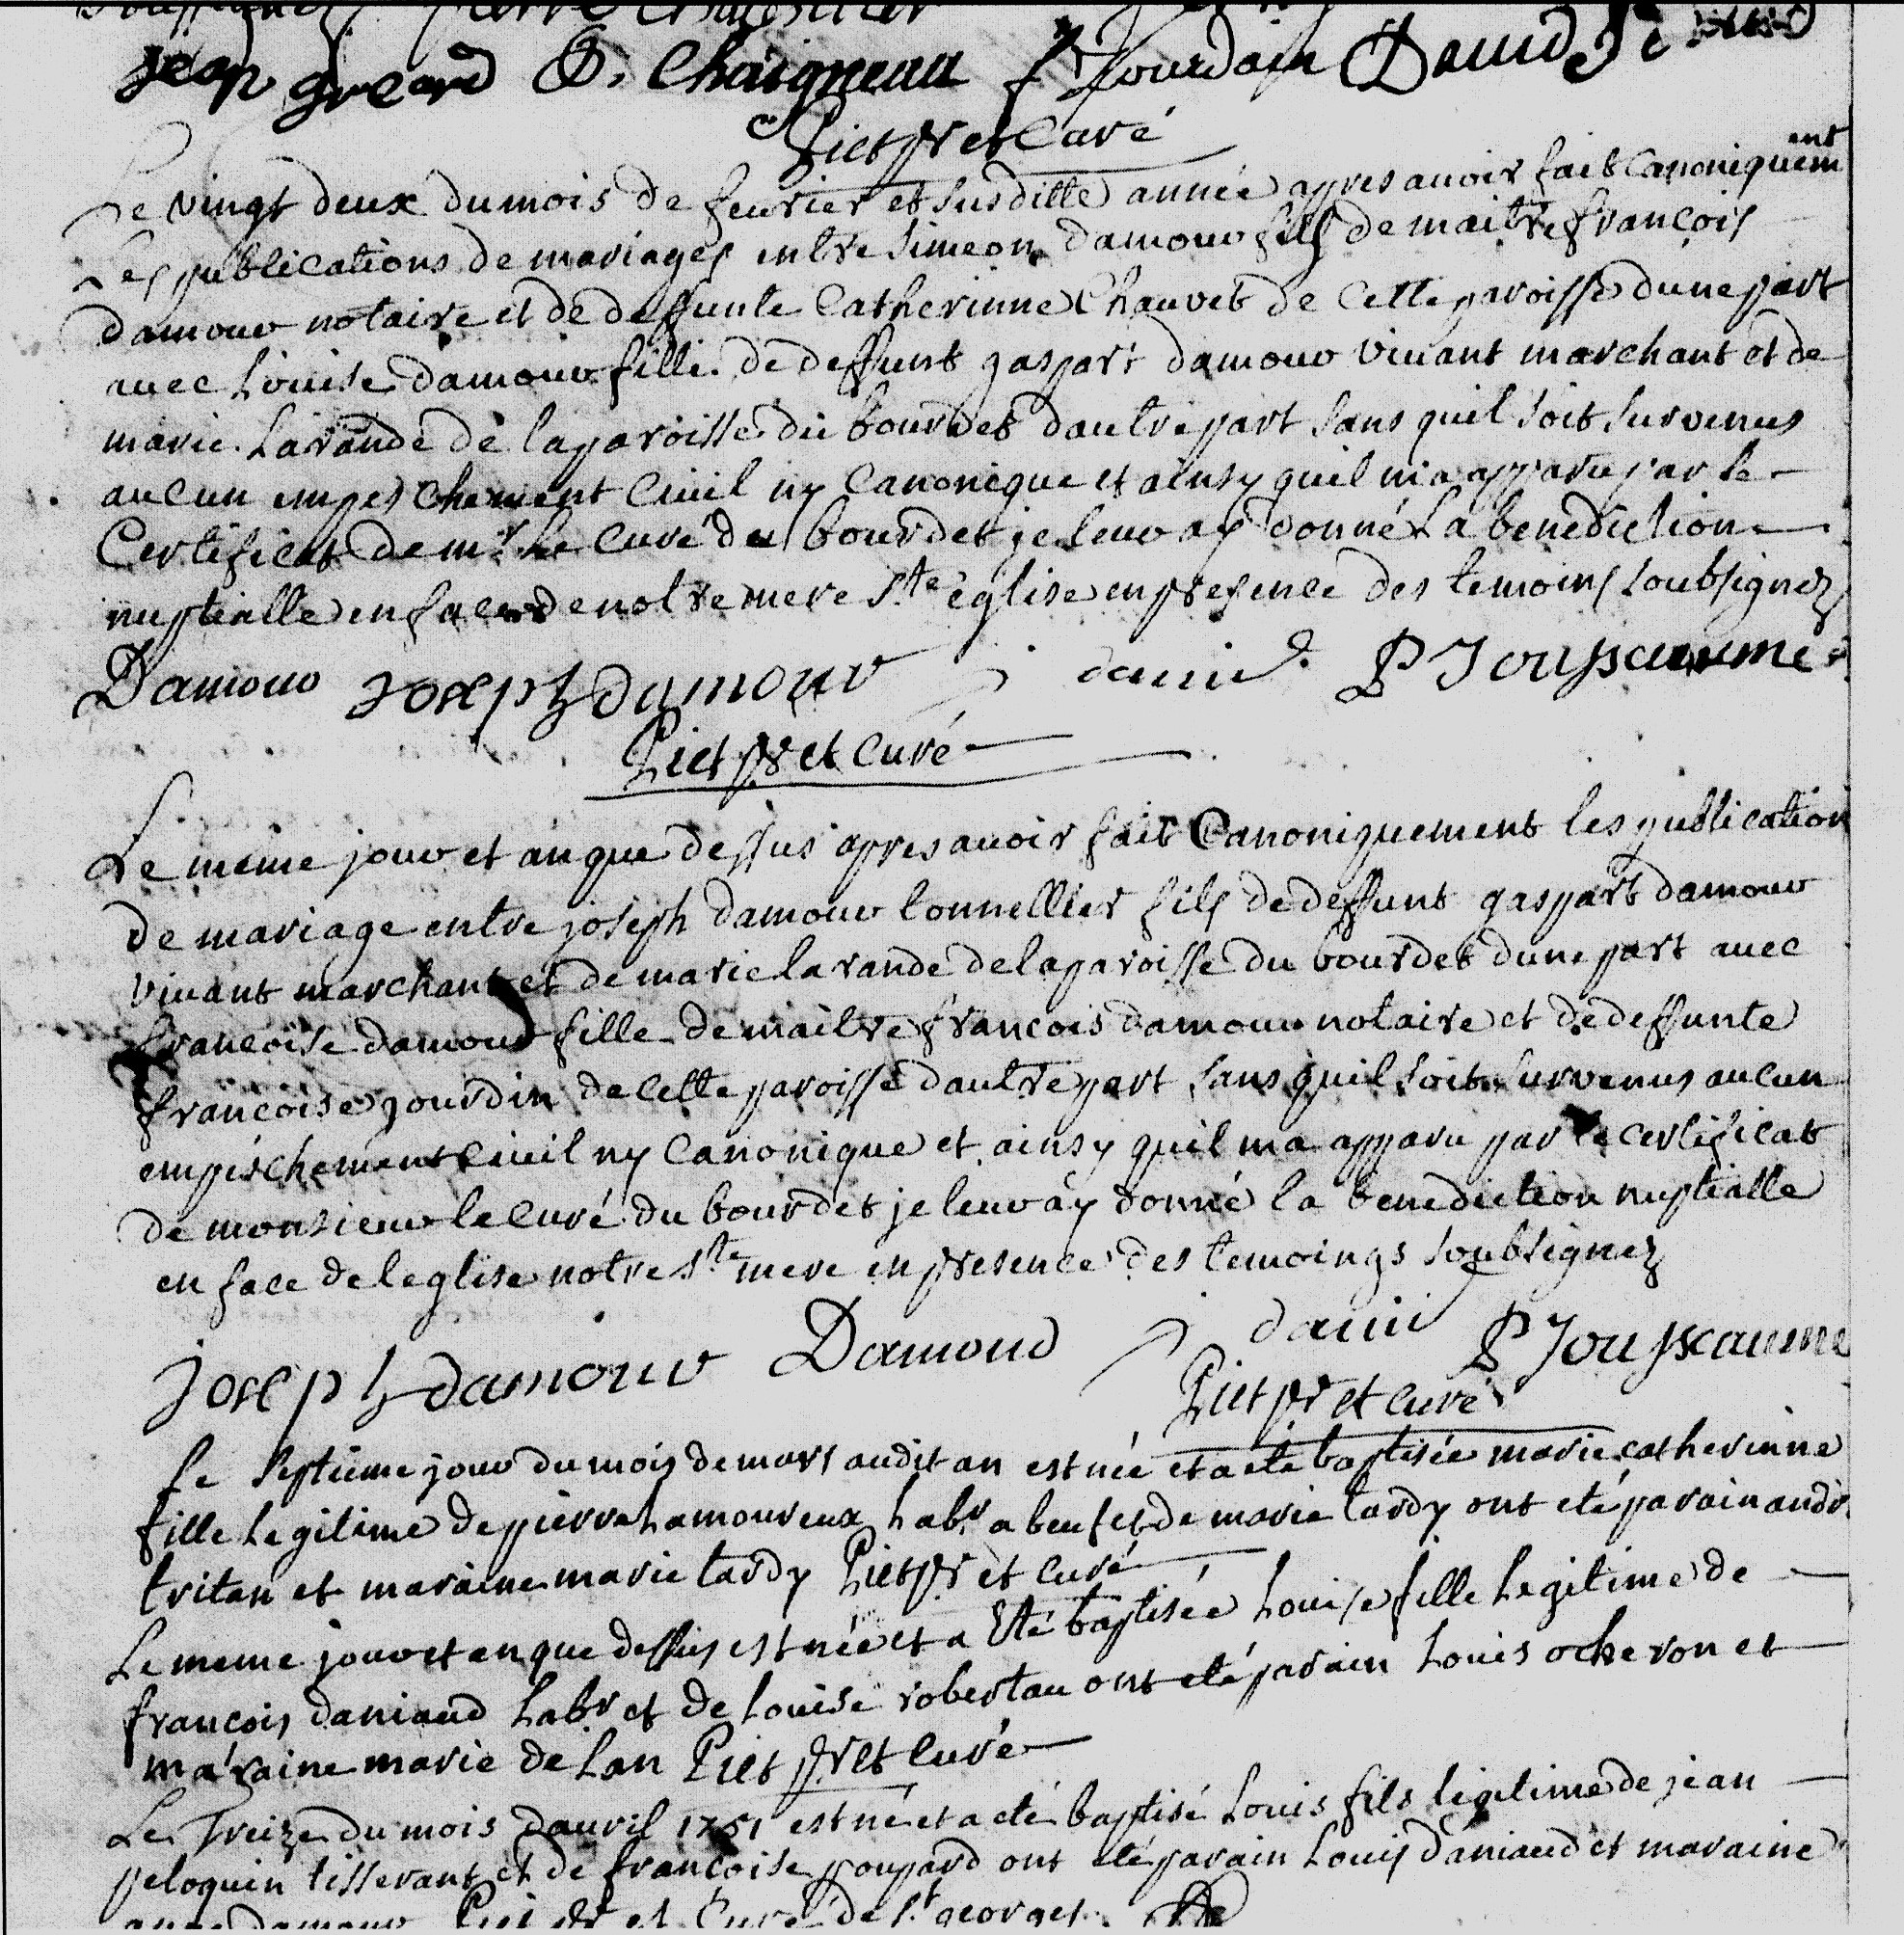 pierre
jean greard D. Chaigneau f Jourdain David
Piet ptr et Curé
Le vingt deux du mois de feurier et susditte année apres auoir fait Canoniquement
Les publications de mariages entre simeon damour fils de maitre françois
damour notaire et de deffunte Catherinne Chauvet de Cette paroisse dune part
auec Louise damour fille de deffunt gaspart damour viuant marchant et de
marie Larande de la paroisse du bourdet dautre part sans quil soit survenus
aucun empeschement Ciuil ny Canonique et ainsy quil ma apparu par le
Certificat de mr le Curé du bourdet je leur ay donné La benediction
nuptialle en face de notre mere Ste église en presence des temoins soubsignez
Damour Joseph damour P Joussaume
Piet ptr et Curé
Le même jour et an que dessus apres auoir fait Canoniquement les publication
de mariage entre joseph damour tonnellier fils de deffunt gaspart damour
viuant marchant et de marie larande de la paroisse du bourdet dune part auec
francoise damour fille de maitre francois damour notaire et de deffunte
francoise jourdin de Cette paroisse dautre part sans quil soit survenus aucun
empéschement Ciuil ny Canonique et ainsy quil ma apparu par le certificat
de monsieur le Curé du bourdet je leur ay donné la benediction nuptialle
en face de leglise notre Ste mere en presence des temoings soubsignez
Joseph damour Damour P Joussaume
Piet ptr et Curé
Le septieme jour du mois de mars audit an est née et a eté baptisée marie catherinne
fille Legitime de pierre Lamoureux Labr a beuf et de marie tardy ont eté parain andr
tritan et maraine marie tardy Piet ptr et Curé
Le meme jour et an que dessus est née et a Eté baptisée Louise fille Legitime de
francois daniaud Labr et de Louise robertau ont eté parain Louis ocheron et
maraine marie de Lan Piet ptr et Curé
Le Treize du mois dauril 1751 est né et a eté baptisé Louis fils legitime de jean
peloquin tisserant et de francoise poupard ont eté parain Louis daniaud et maraine
damour Piet ptr et Curé de St georges